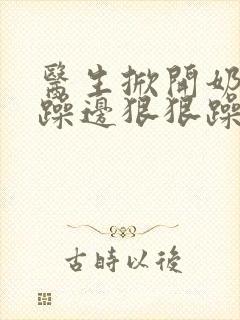 醫生掀開奶
躁邊狠狠躁
古時以後